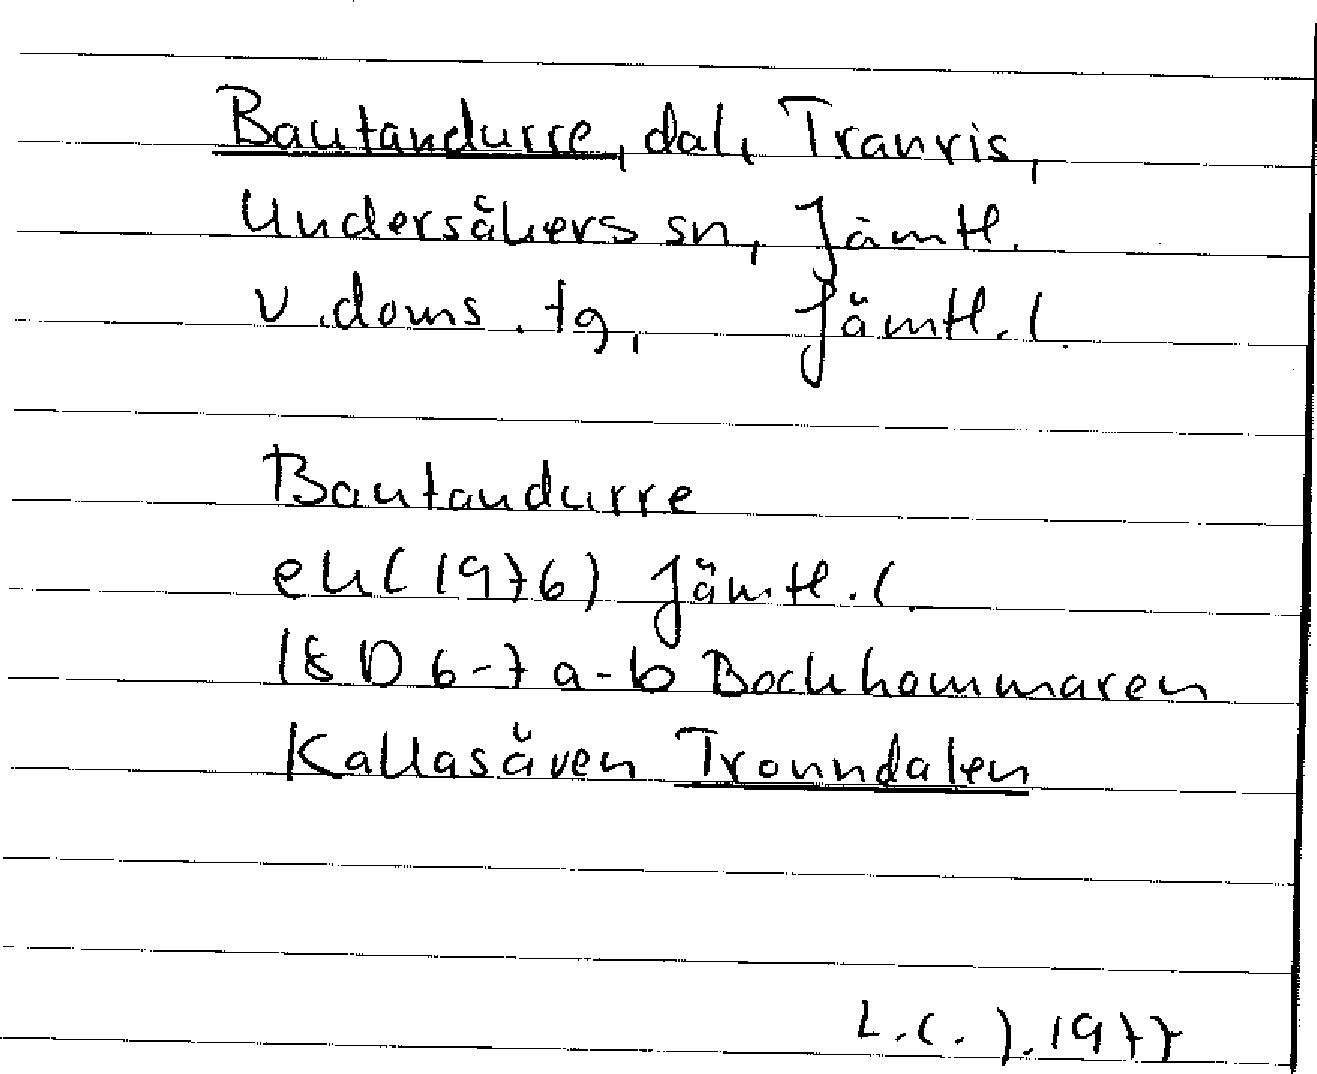 Bautandurre, dal, Tranris,
Undersåkers sn, Jämtl.
v. doms. tg, Jämtl. l.
Bautandurre
ek (1976) Jämtl. l.
18 D 6-7 a-b Bockhammaren
Kallasåven Tronndalen
L.C.J. 1977